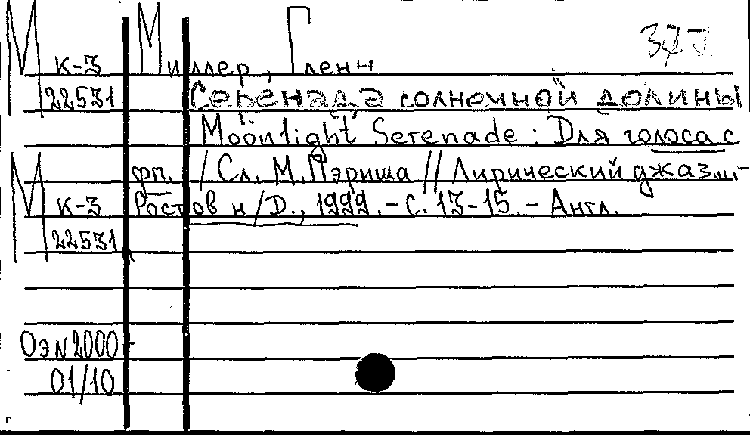 М Миллер, Гленн
к-3
22531 Серенада солнечной долины
Moonlight Serenade : Для голоса с
фп. / Сл. М. Пэриша // Лирический джаз...-
М к-3 Ростов н/Д., 1999. - С. 13-15. - Англ.
22531
ОэN2000
01/10